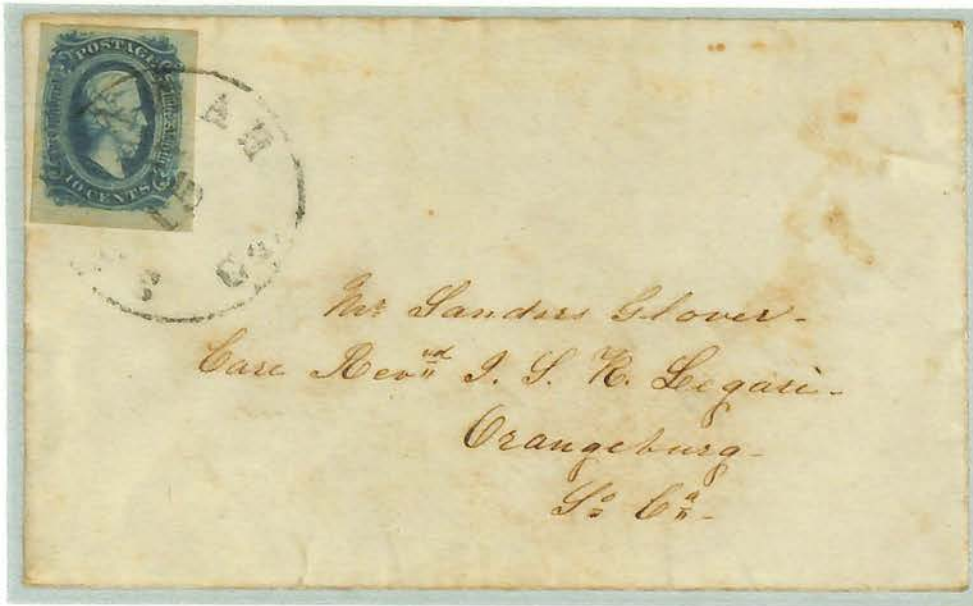 POSTAGE
10 CENTS
AH
10
Ga.
Mr Sanders Glover-
Care Revnd I. S. K. Legare-
Orangeburg-
So Ca-